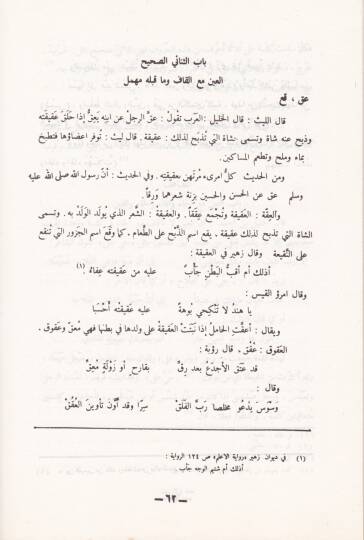 باب الثنائي الصحيح
العين مع القاف وما قبله مهمل
عق ، قع
قال الليث : قال الخليل : العرب تقول : عقّ الرجلُ عن ابنِه يعِقُّ إذا حَلَقَ عَقيقَته
وذبح عنه شاةً وتسمى الشاة التي تُذبح لذلك : عقيقة . قال ليث : تُوفّر اعضاؤها فتطبخ
بماء وملح وتطعم المساكين .
ومن الحديث كلُّ امرىء مُرتهن بعقيقتِه . وفي الحديث : أنّ رسولَ الله صلى الله عليه
وسلم عق عن الحسن والحسين بزِنة شعرهما وَرِقاً .
والعِقّة : العقيقة وتُجمَع عِقَقاً . والعقيقة : الشَّعر الذي يُولَد الوَلَد به . وتسمى
الشاة التي تذبح لذلك عقيقة . يقع اسم الذَّبْح على الطعام ، كما وقَعَ اسم الجَزور التي تُنقَع
على النَّقيعة وقال زهير في العقيقة :
أذلك أم أقَبُّ البَطنِ جَأْبٌ عليه من عَقيقته عِفاءُ (١)
وقال امرؤ القيس :
يا هندُ لا تَنْكِحِي بُوهةً عليه عَقيقتُه أحْسَبا
ويقال : أعقَّتِ الحاملُ إذا نَبَتَتْ العَقيقةُ على ولدها في بطنها فهي مُعِقّ وعَقوق .
العَقوق : عُقُق . قال رؤبة :
قد عَتَق الأجدَعُ بعد رِقِّ بقارحٍ أو زَوْلَةٍ مُعِقِّ
وقال :
وَسْوَسَ يَدْعُو مخلصا رَبَّ الفَلَقْ سِرّاً وقد أوَّن تَأوِينَ العُقُقْ
(١) في ديوان زهير «رواية الاعلم» ص ١٢٤ الرواية :
أذلك أم شتيم الوجه جأب
— ٦٢ —